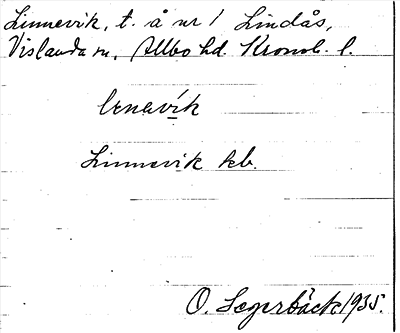 Linnevik, t. å nr 1 Lindås,
Vislanda sn, Allbo hd. Kronob. l.
lenavík
Linnevik kb.
O. Segerbäck 1935.